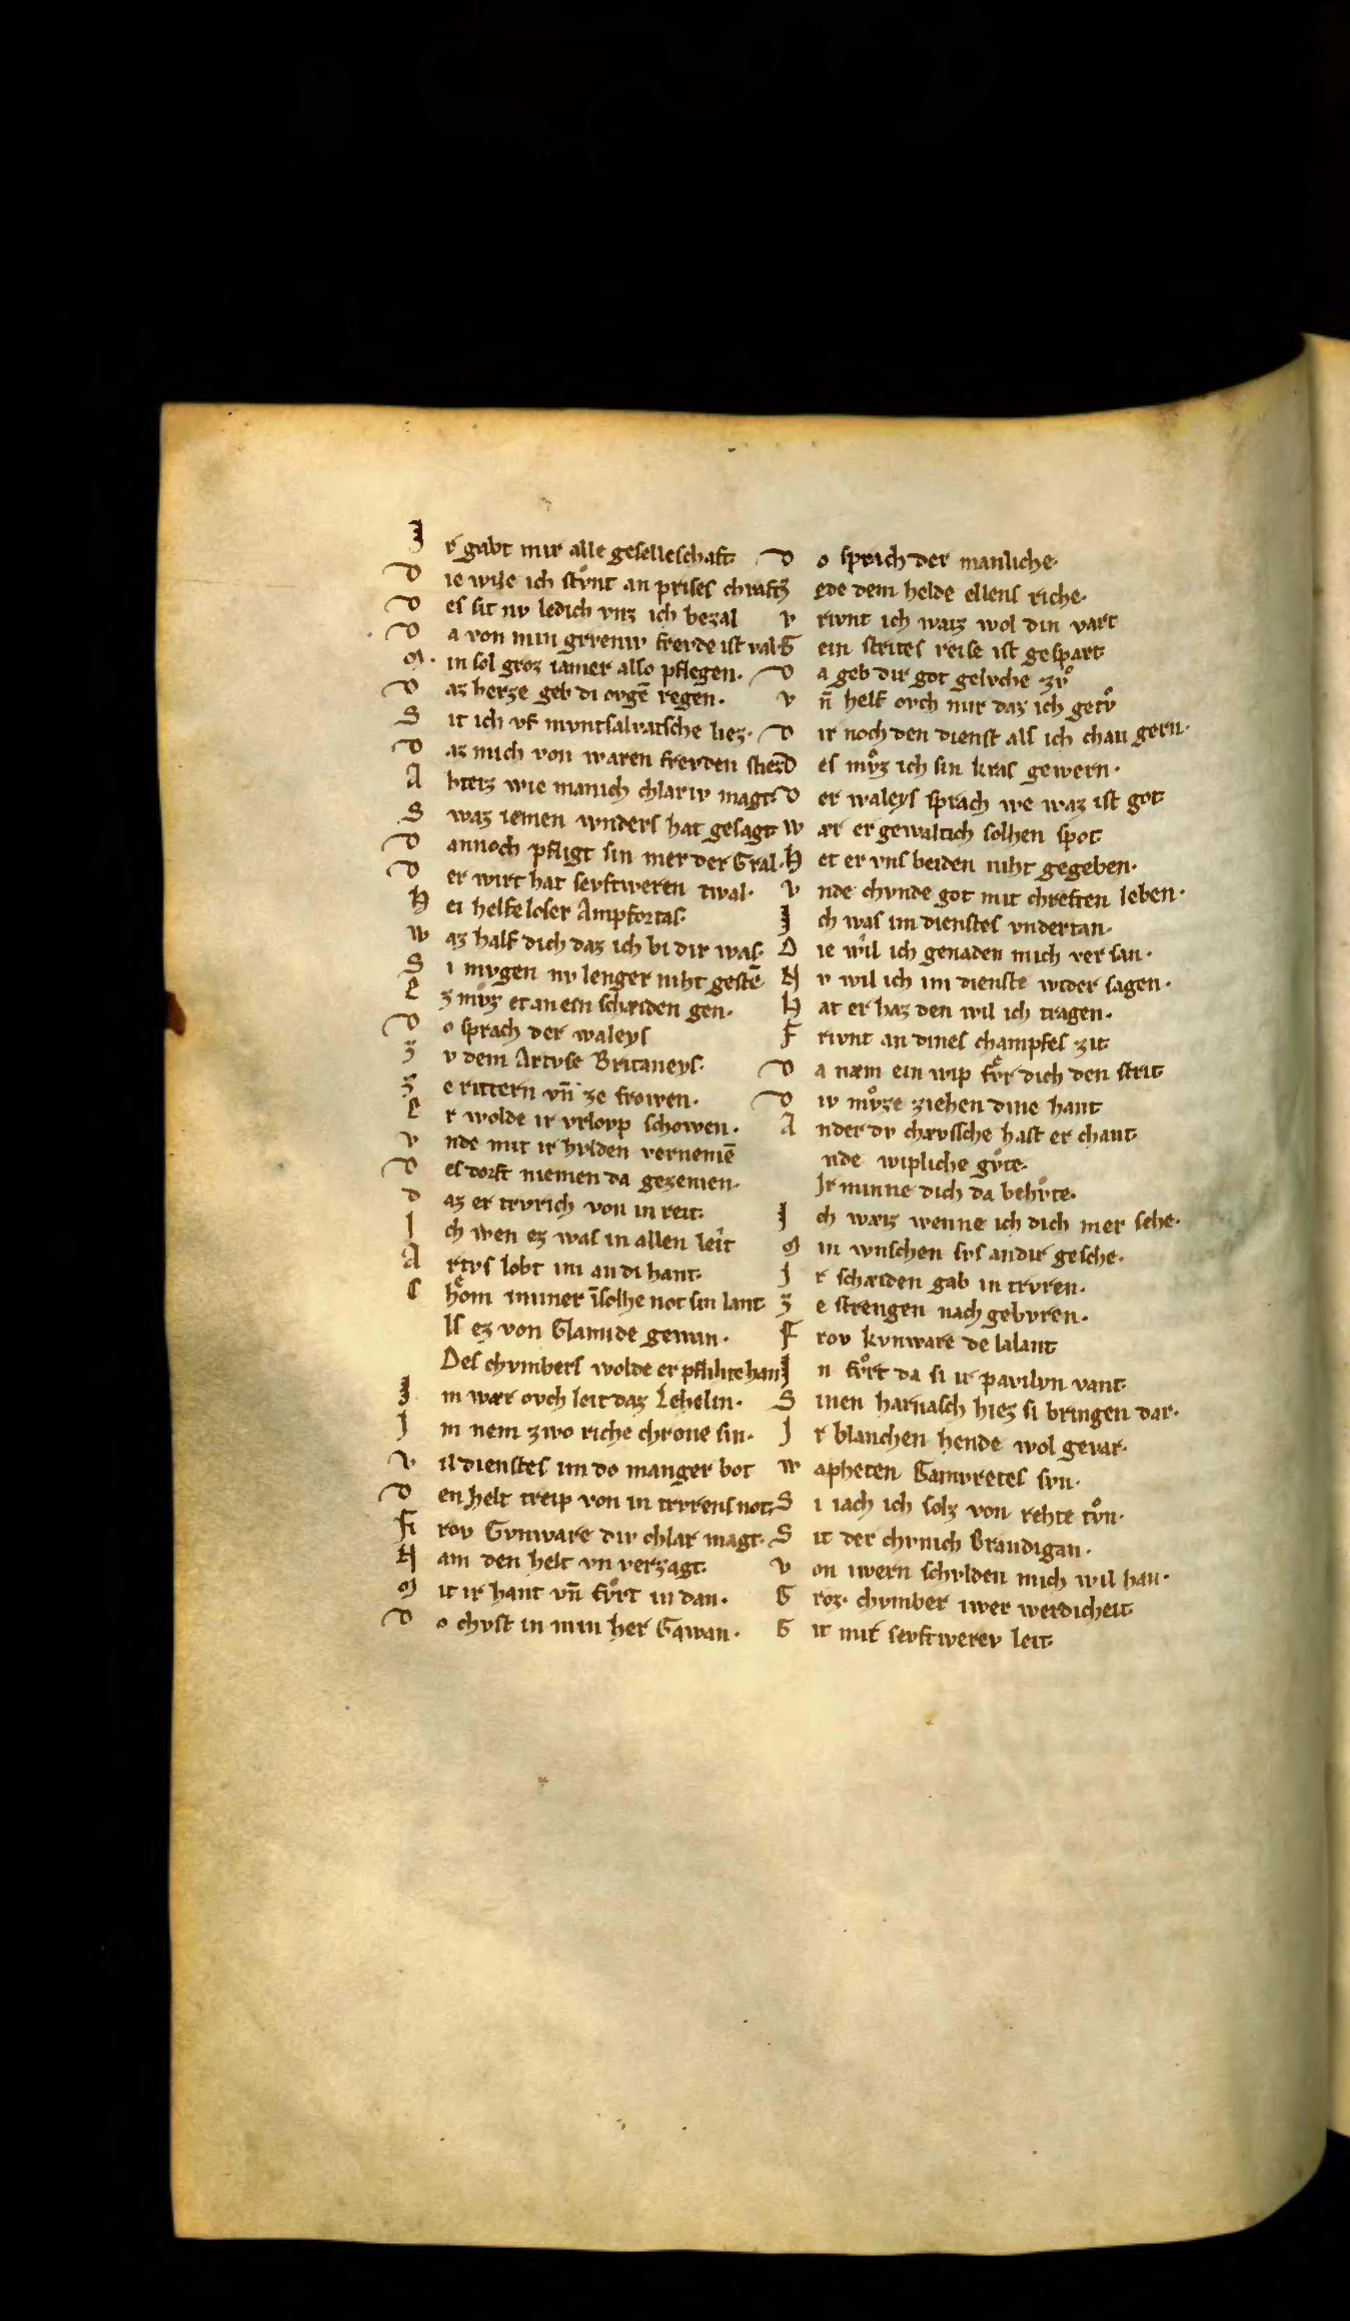 J r gabt mir alle geselleschaft·
D ie wile ich stůnt an prises chraft
D es sit nv ledich vnz ich bezal
D a von min grveniv frevde ist val·
M in sol groz iamer also pflegen·
D az herze geb di ovgē regen·
S it ich vf mvntsalvatsche liez·
D az mich von waren frevden stiez
A hteiz wie manich chlariv magt·
S waz iemen wnders hat gesagt
D annoch pfligt sin mer der Gral·
D er wirt hat sevftweren twal·
H ei helfeloser Ampfortas·
W az half dich daz ich bi dir was·
S i mvgen nv lenger niht gestē·
E z mvͦz et an ein schæiden gen·
D o sprach der waleys
Z v dem Artvse Britaneys·
Z e rittern vn̄ ze frowen·
E r wolde ir vrlovp schowen·
V nde mit ir hvlden vernemē
D es dorft niemen da gezemen·
D az er trvrich von in reit·
I ch wen ez was in allen leit
A rtvs lobt im an di hant·
C hoͤm immer īsolhe not sin lant
Als ez von Clamide gewan·
Des chvmbers wolde er pflihte han
J m wær ovch leit daz Lehelin·
J m nem zwo riche chrone sin·
V il dienstes im do manger bot
D en helt treip von in trvrens not·
F rov Gvnware div chlar magt·
N am den helt vn verzagt·
M it ir hant vn̄ fvͦrt in dan·
D o chvst in min her Gawan·
D o sprach der manliche·
Z ede dem helde ellens riche·
V rivnt ich waiz wol din vart
E in strites reise ist gespart
D a geb dir got gelvche zvͦ
V n̄ helf ovch mir daz ich getvͦ
D ir noch den dienst als ich chan gern·
D es mvͦz ich sin kraf gewern·
D er waleys sprach we waz ist got
W ær er gewaltich solhen spot
H et er vns beiden niht gegeben·
V nde chvnde got mit chreften leben·
J ch was im dienstes vndertan·
D ie wil ich genaden mich versan·
N v wil ich im dienste wider sagen·
H at er haz den wil ich tragen·
F rivnt an dines champfes zit
D a næm ein wip fvͤr dich den strit
D iv mvͦze ziehen dine hant
A nder dv chævssche hast er chant
nde wipliche gvͤte·
Jr minne dich da behvͤte·
J ch waiz wenne ich dich mer sehe·
M in wnschen svs an dir gesche·
J r schæiden gab in trvren·
Z e strengen nach gebvren·
F rov kvnware de lalant
J n fvͦrt da si ir pavilvn vant·
S inen harnasch hiez si bringen dar·
J r blanchen hende wol gevar·
W apheten Gamvretes svn·
S i iach ich solz von rehte tvͦn·
S it der chvnich Brandigan·
V on iwern schvlden mich wil han·
G roz· chvmber iwer werdicheit
G it mir sevftwerev leit·